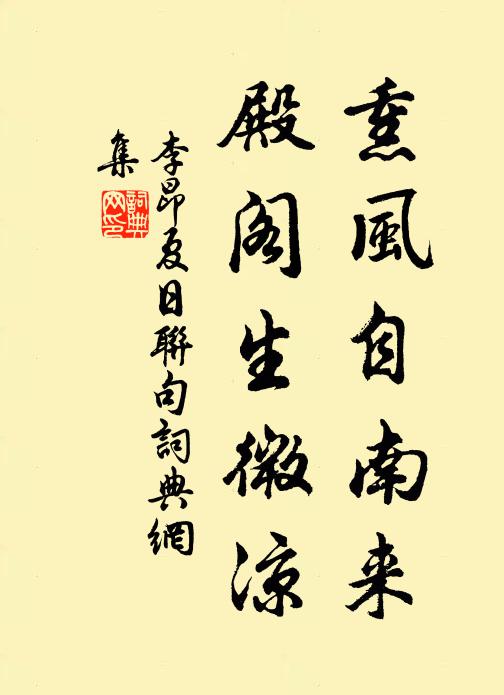 熏風自南来
殿阁生微涼
李昂夏日聯句詞典網
集
詞典
网印